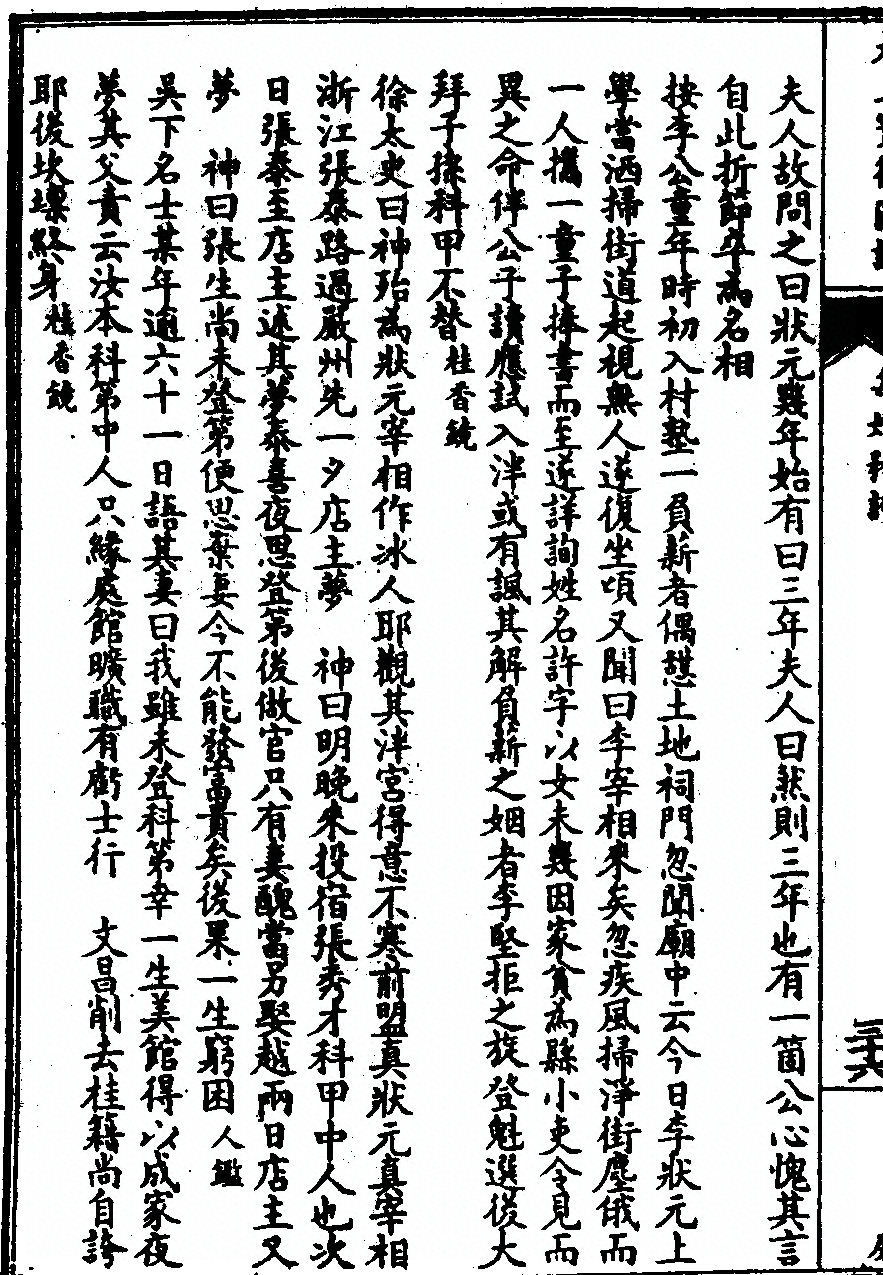 夫人故問之曰狀元幾年始有曰三年夫人曰然則三年也有一箇公心愧其言
自此折節卒為名相
按李公童年時初入村塾一負薪者偶憩土地祠門忽聞廟中云今日李狀元上
學當洒掃街道起視無人遂復坐頃又聞曰李宰相來矣忽疾風掃淨街塵俄而
一人攜一童子捧書而至遂詳詢姓名許字以女未幾因家貧為縣小吏令見而
異之命伴公子讀應試入泮或有諷其解負薪之姻者李堅拒之旋登魁選後大
拜子孫科甲不替桂香鏡
徐太史曰神殆為狀元宰相作冰人耶觀其泮宮得意不寒前盟真狀元真宰相
浙江張泰路過嚴州先一夕店主夢 神曰明晚來投宿張秀才科甲中人也次
日張泰至店主述其夢泰喜夜思登第後做官只有妻醜當另娶越兩日店主又
夢 神曰張生尚未登第便思棄妻今不能發富貴矣後果一生窮困人鑑
吳下名士某年逾六十一日語其妻曰我雖未登科第幸一生美館得以成家夜
夢其父責云汝本科第中人只緣處館曠職有虧士行 文昌削去桂籍尚自誇
耶後坎壈終身桂香鏡
三十六